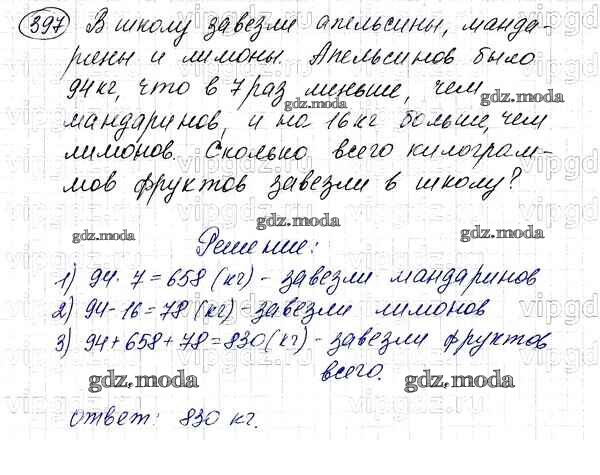 397 В школу завезли апельсины, манда-
рины и лимоны. Апельсинов было
94 кг, что в 7 раз меньше, чем
мандаринов, и на 16 кг больше, чем
лимонов. Сколько всего килограм-
мов фруктов завезли в школу?
Решение:
1) 94 · 7 = 658 (кг) - завезли мандаринов
2) 94 - 16 = 78 (кг) - завезли лимонов
3) 94 + 658 + 78 = 830 (кг) - завезли фруктов
всего.
Ответ: 830 кг.
gdz.moda
gdz.moda
gdz.moda
gdz.moda
gdz.moda
gdz.moda
gdz.moda
gdz.moda
vipgdz